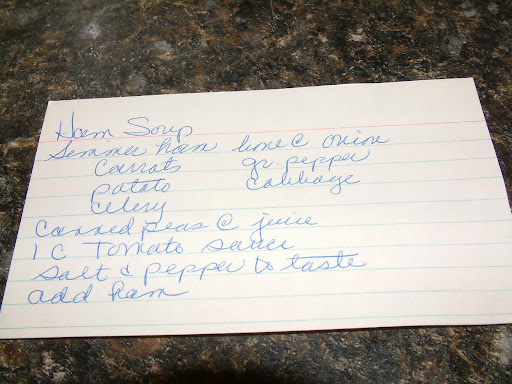 Ham Soup
Simmer ham bone c onion
carrots gr. pepper
potato cabbage
celery
canned peas c juice
1 C Tomato sauce
salt & pepper to taste
add ham